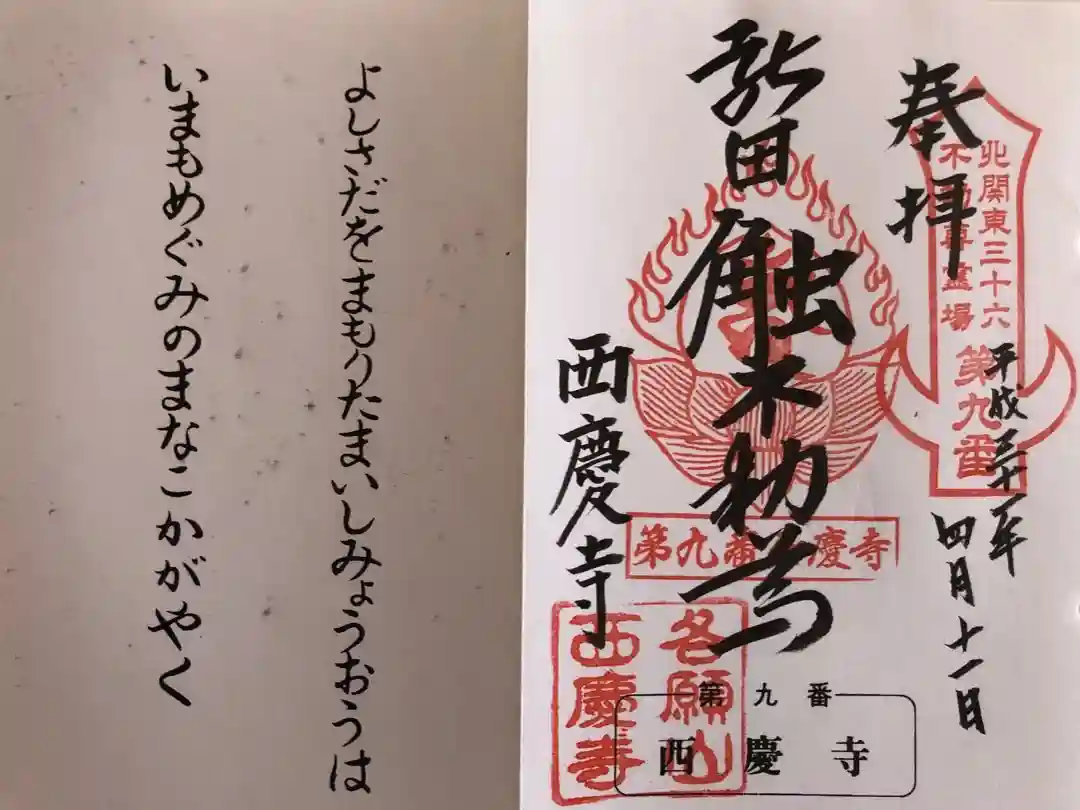 奉拝
北関東三十六
不動尊霊場
第九番
平成三十一年
四月十一日
新田触不動尊
西慶寺
第九番西慶寺
各願山
西慶寺
第九番
西慶寺
よしさだをまもりたまいしみょうおうは
いまもめぐみのまなこかがやく